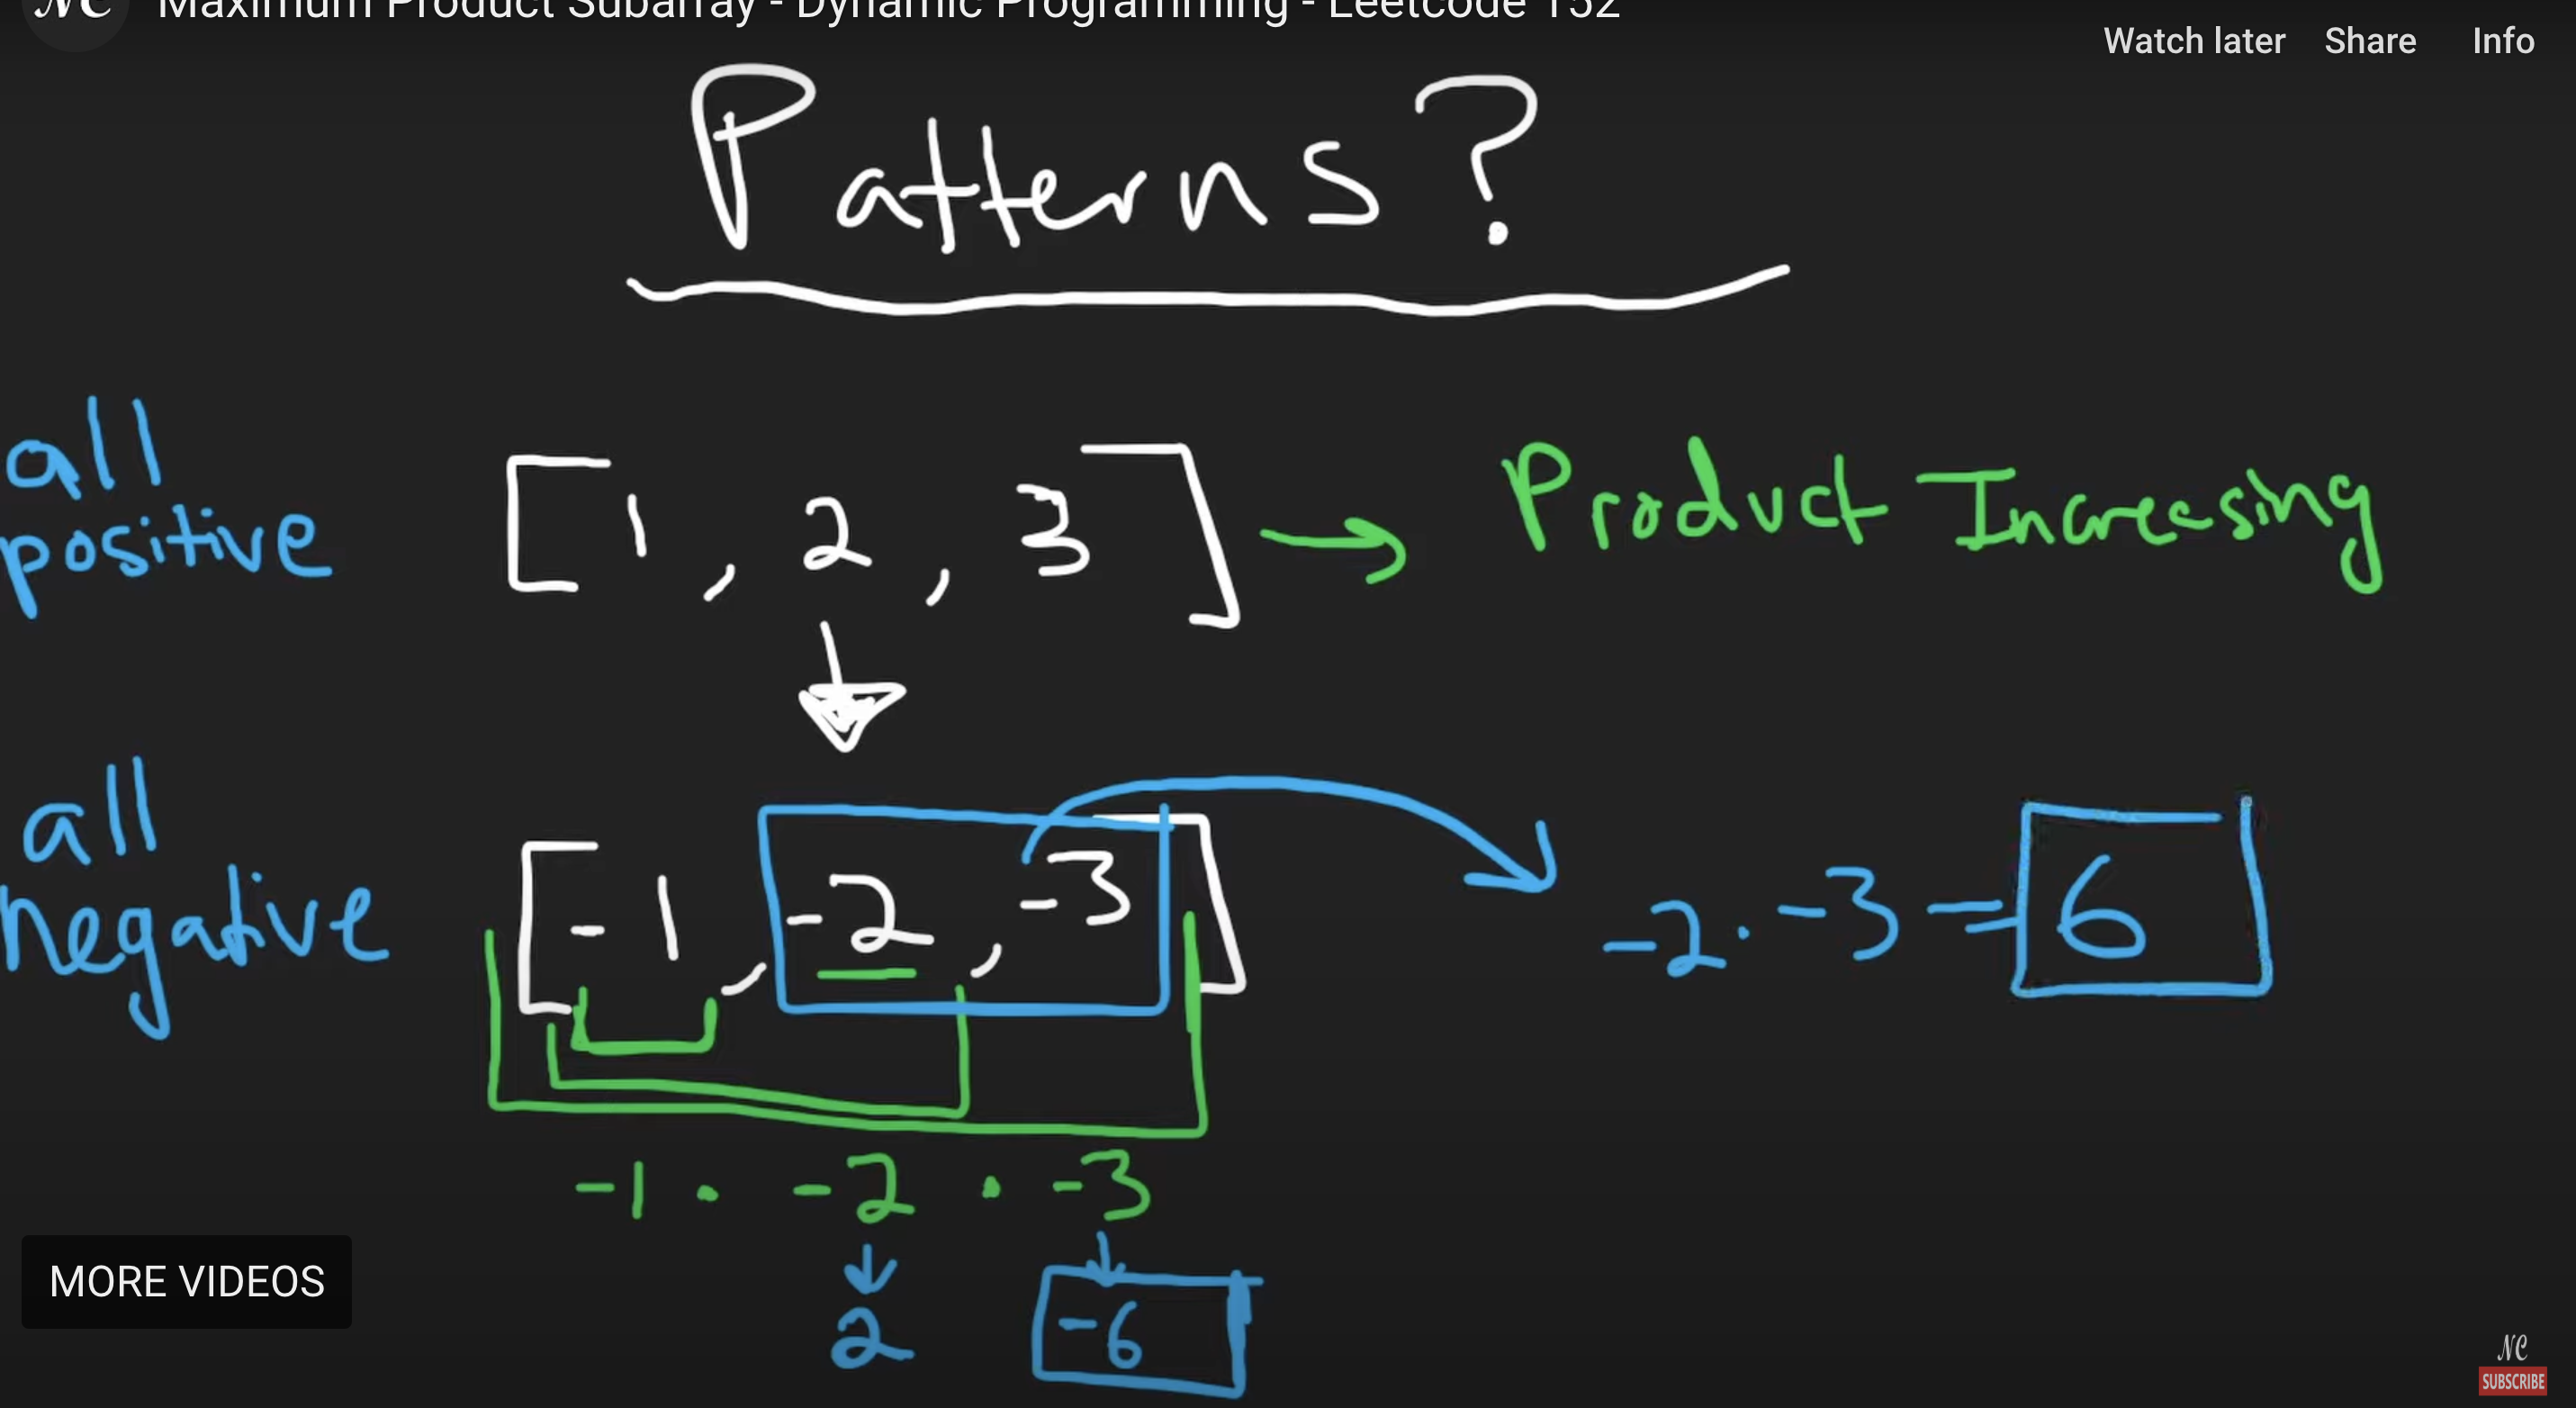 NC Maximum Product Subarray - Dynamic Programming - Leetcode 152
Watch later Share Info
Patterns?
all
positive
[1, 2, 3] → Product Increasing
all
negative
[-1, -2, -3]
-2 · -3 = 6
-1 · -2 · -3
2 -6
MORE VIDEOS
NC
SUBSCRIBE